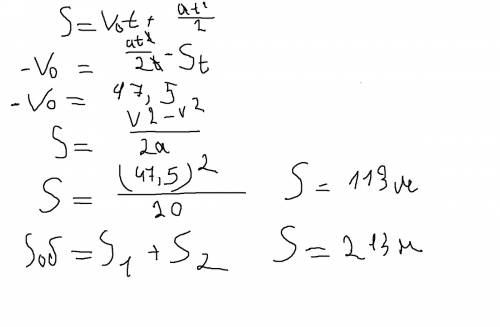 S = V₀t + at²/2
-V₀ = at²/2t - St
-V₀ = 47,5
S = V2-v2/2a
S = (47,5)2/20 S = 113м
Sоб = S1 + S2 S = 213м